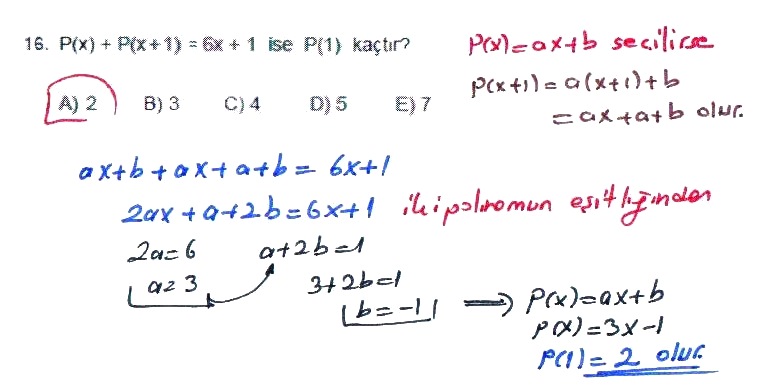 16. P(x) + P(x+1) = 6x + 1 ise P(1) kaçtır?
A) 2 B) 3 C) 4 D) 5 E) 7
P(x)=ax+b seçilirse
P(x+1)=a(x+1)+b
=ax+a+b olur.
ax+b+ax+a+b= 6x+1
2ax+a+2b=6x+1 iki polinomun eşitliğinden
2a=6 a+2b=1
a=3 3+2b=1
b=-1
⟹ P(x)=ax+b
P(x)=3x-1
P(1)=2 olur.